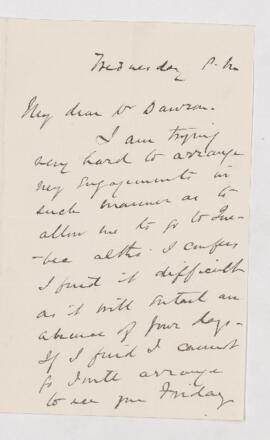 Wednesday P.M
My dear Dr Dawson.
I am trying
very hard to arrange
my engagements in
such manner as to
allow me to go to Que-
bec altho. I confess
I find it difficult
as it will entail an
absence of four days-
If I find I cannot
go I will arrange
to see you Friday